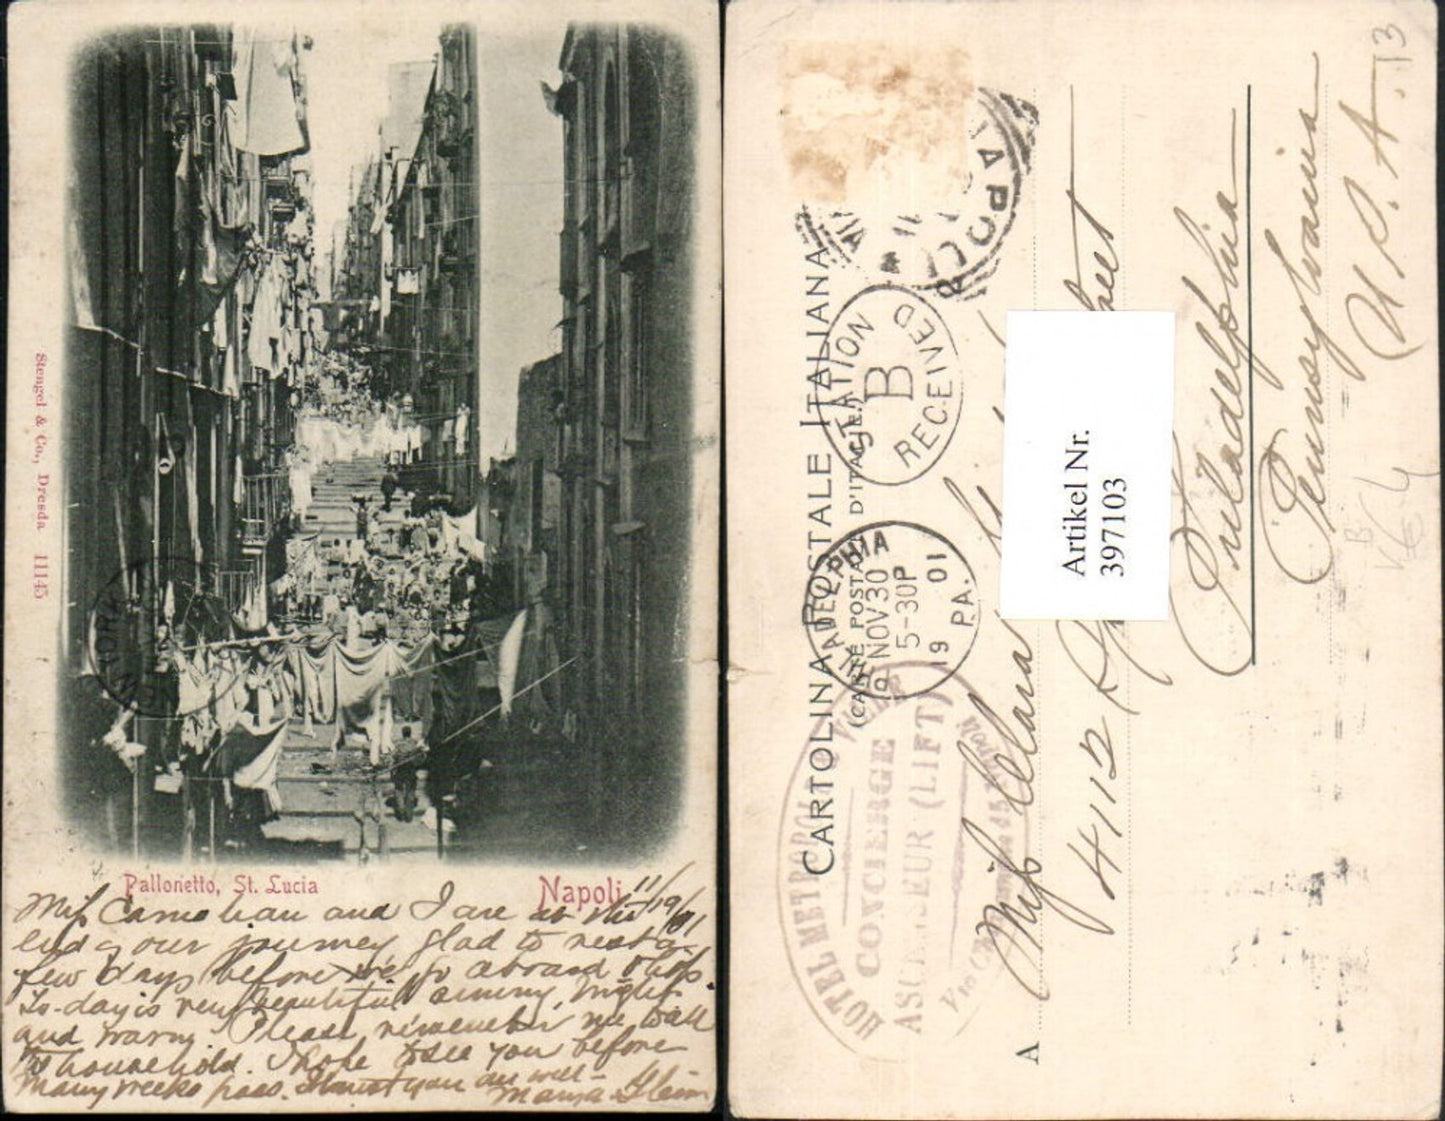 Stengel & Co., Dresda 11145
Pallonetto, St. Lucia
Napoli
11/19/01
Miss and I are at the
end of our journey glad to rest a
few days before we go aboard ship.
To-day is very beautiful sunny, bright
and warm. Please remember me to all
the household. I hope to see you before
many weeks pass. I trust you are well–
YORK
CARTOLINA POSTALE ITALIANA
(CARTE POSTALE D'ITALIE)
NAPOLI
STATION
B
RECEIVED
PHILADELPHIA
NOV 30
5-30P
19 01
PA.
HOTEL METROPOLE
CONCIERGE
ASCENSEUR (LIFT)
A
Miss Clara
4112
Philadelphia
Pennsylvania
U.S.A.
13
Artikel Nr.
397103